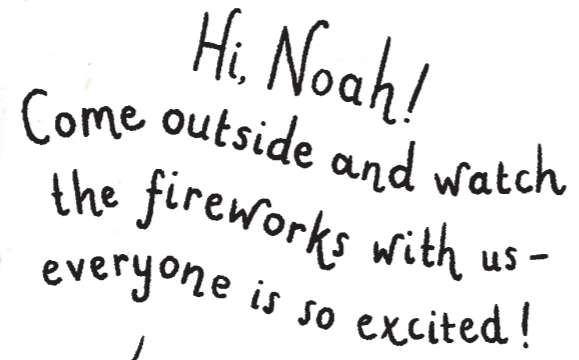 Hi, Noah!
Come outside and watch
the fireworks with us-
everyone is so excited!